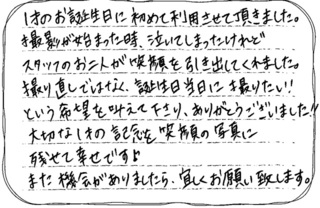 1才のお誕生日に初めて利用させて頂きました。
撮影が始まった時、泣いてしまったけれど
スタッフのお二人が笑顔を引き出してくれました。
撮り直しではなく、誕生日当日に撮りたい!!
という希望を叶えて下さり、ありがとうございました!!
大切な1才の記念を笑顔の写真に
残せて幸せです♪
また機会がありましたら、宜しくお願い致します。